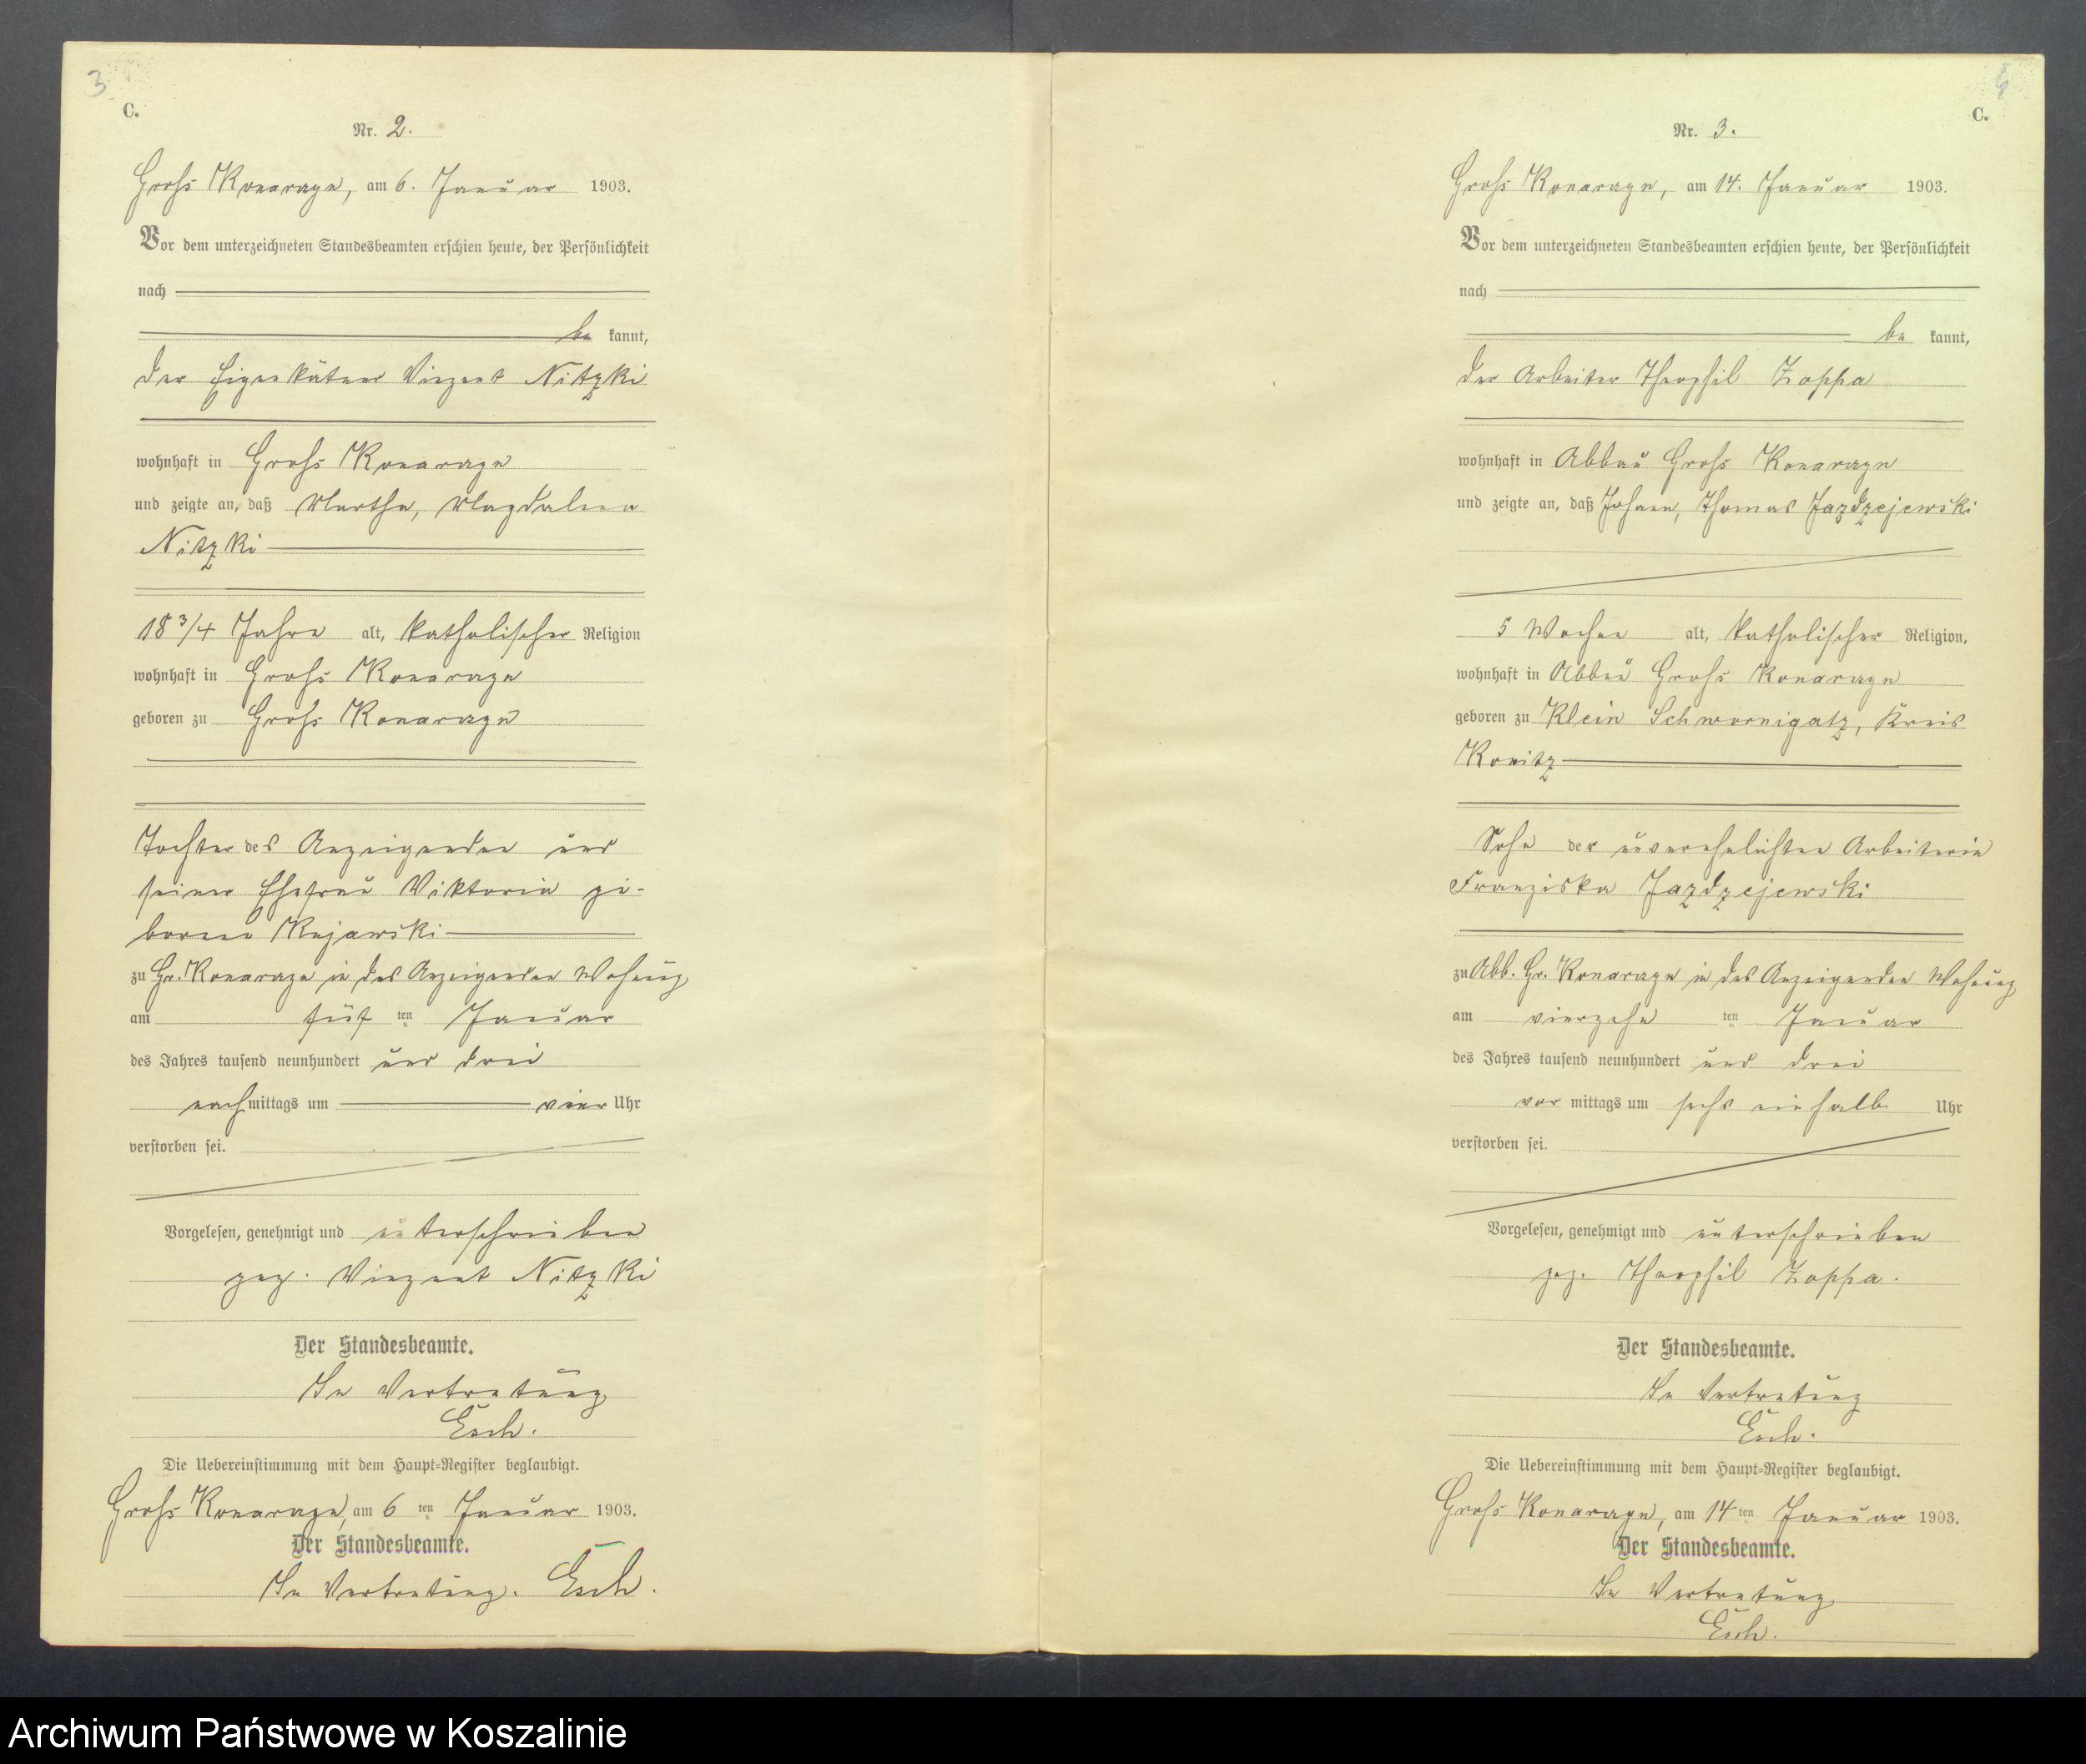 3
C.
Nr. 2.
Groß Konarzyn, am 6. Januar 1903.
Vor dem unterzeichneten Standesbeamten erschien heute, der Persönlichkeit
nach
be kannt,
der Eigenkätner Vinzent Nitzki
wohnhaft in Groß Konarzyn
und zeigte an, daß Martha, Magdalena
Nitzki
18 3/4 Jahre alt, katholischer Religion
wohnhaft in Groß Konarzyn
geboren zu Groß Konarzyn
Tochter des Anzeigenden und
seiner Ehefrau Viktoria ge-
borene Kujawski
zu Gr. Konarzyn in des Anzeigenden Wohnung
am fünften Januar
des Jahres tausend neunhundert und drei
nachmittags um vier Uhr
verstorben sei.
Vorgelesen, genehmigt und unterschrieben
gez. Vinzent Nitzki
Der Standesbeamte.
In Vertretung
Esch.
Die Uebereinstimmung mit dem Haupt-Register beglaubigt.
Groß Konarzyn, am 6 ten Januar 1903.
Der Standesbeamte.
In Vertretung. Esch.
C.
Nr. 3.
Groß Konarzyn, am 14. Januar 1903.
Vor dem unterzeichneten Standesbeamten erschien heute, der Persönlichkeit
nach
be kannt,
der Arbeiter Theophil Zoppa
wohnhaft in Abbau Groß Konarzyn
und zeigte an, daß Johann, Thomas Jazdzejewski
5 Wochen alt, katholischer Religion,
wohnhaft in Abbau Groß Konarzyn
geboren zu Klein Schwornigatz, Kreis
Konitz
Sohn der unverehelichten Arbeiterin
Franziska Jazdzejewski
zu Abb. Gr. Konarzyn in des Anzeigenden Wohnung
am vierzehn ten Januar
des Jahres tausend neunhundert und drei
vor mittags um sechs einhalb Uhr
verstorben sei.
Vorgelesen, genehmigt und unterschrieben
gez. Theophil Zoppa.
Der Standesbeamte.
In Vertretung
Esch.
Die Uebereinstimmung mit dem Haupt-Register beglaubigt.
Groß Konarzyn, am 14 ten Januar 1903.
Der Standesbeamte.
In Vertretung
Esch.
Archiwum Państwowe w Koszalinie